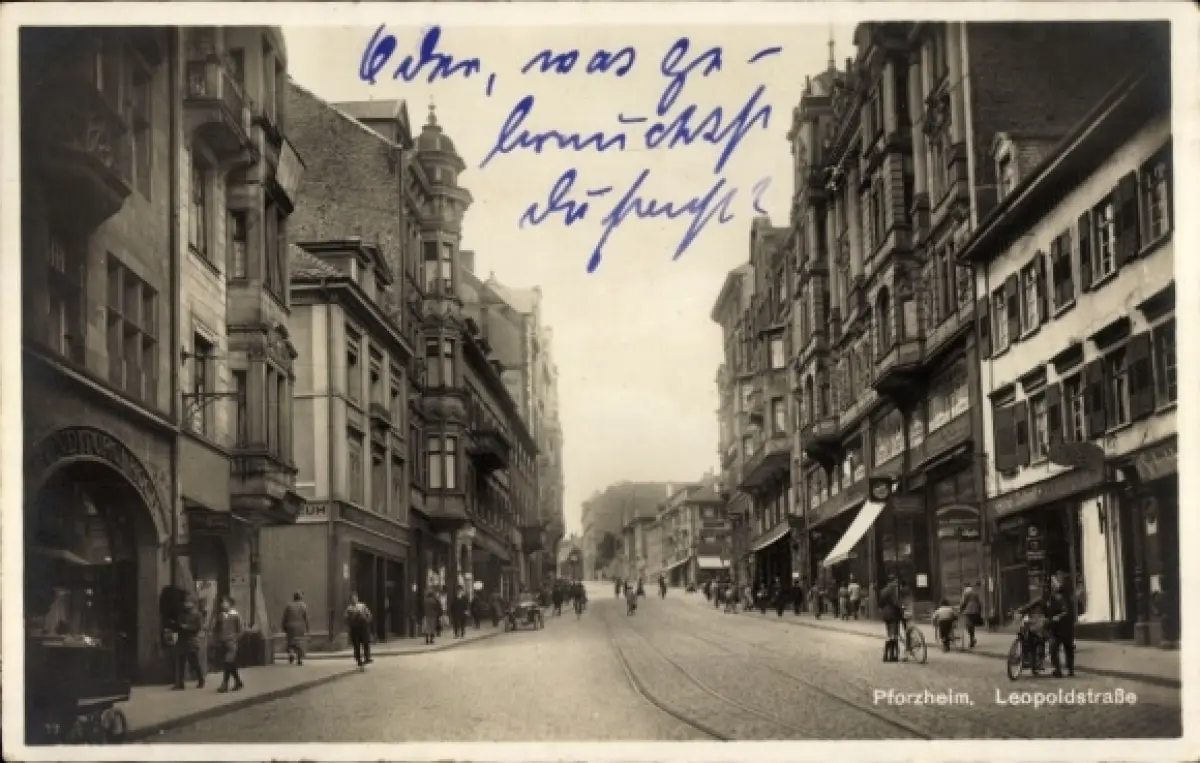 Oder, was ge-
brauchst
du sonst?
UH
Pforzheim, Leopoldstraße